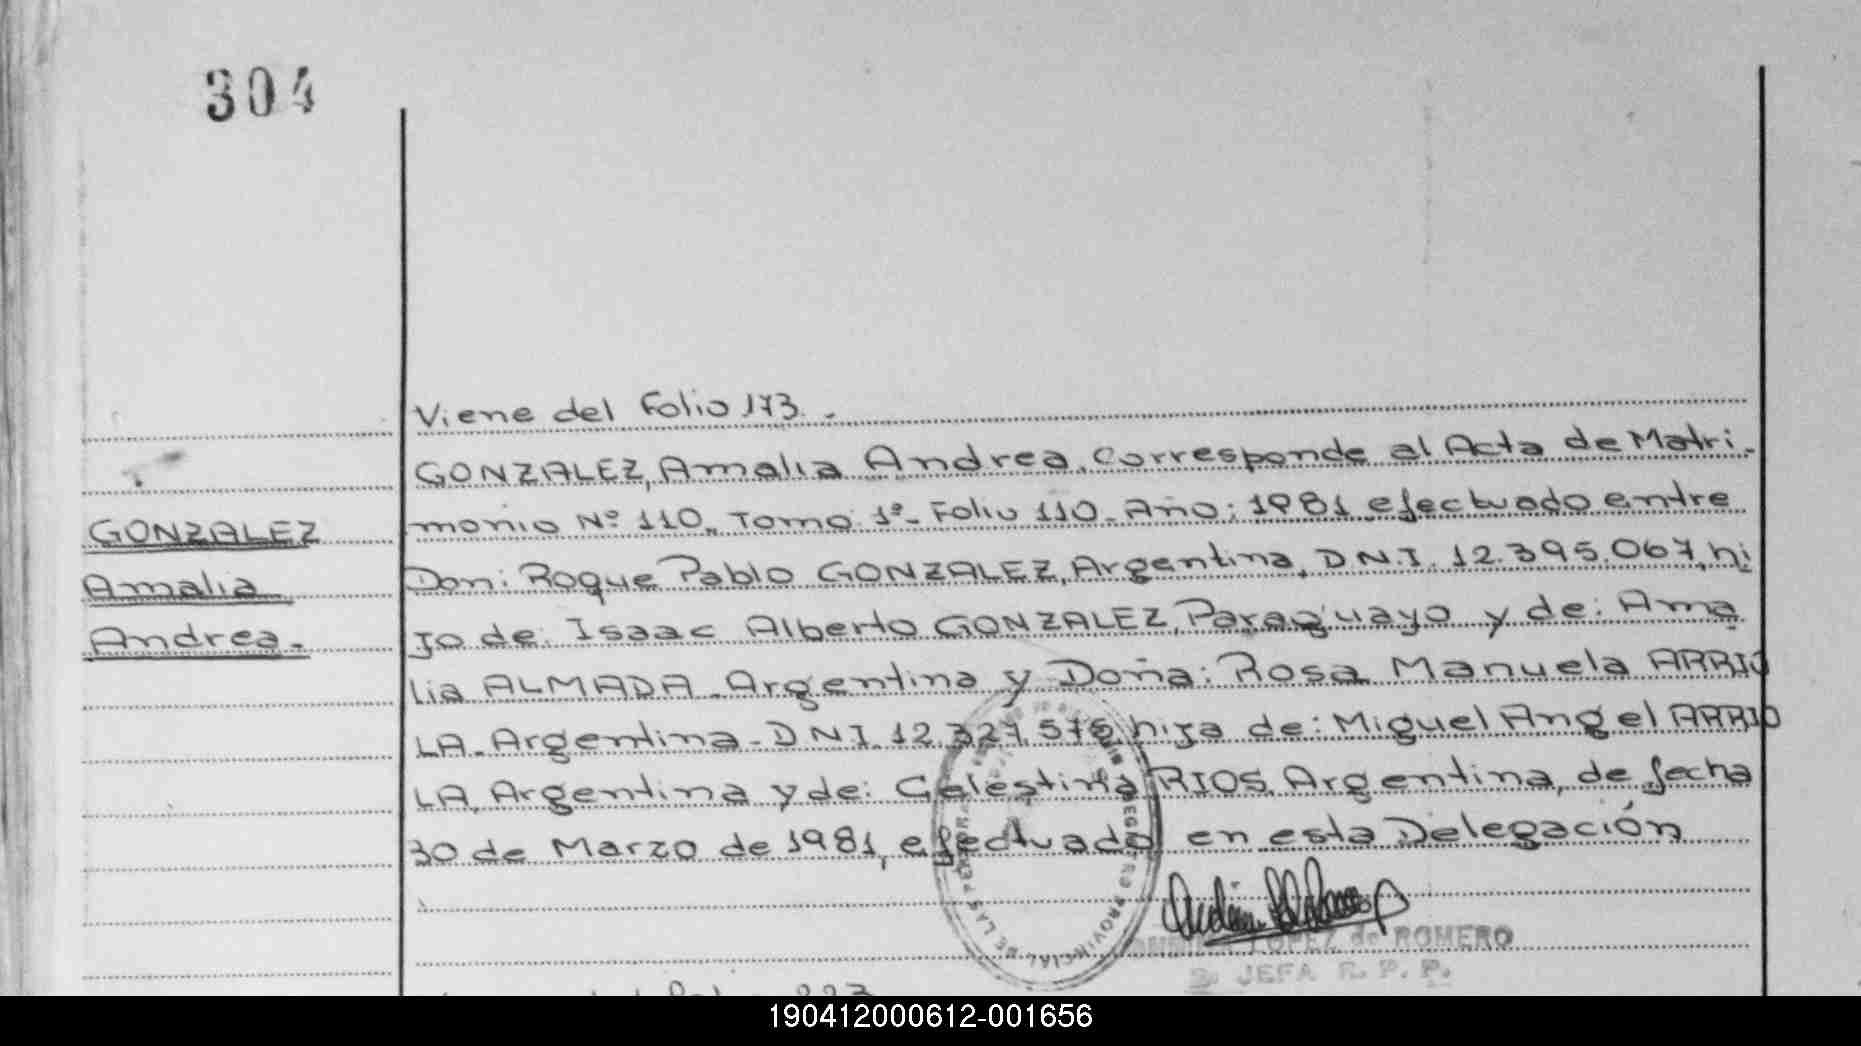 304
Viene del Folio 173.-
GONZALEZ, Amalia Andrea, corresponde al Acta de Matri-
GONZALEZ
monio Nº 110. Tomo: 1º- Folio 110- Año: 1981 efectuado entre
Amalia
Don: Roque Pablo GONZALEZ, Argentina, D.N.I. 12.395.067, hi
Andrea.-
jo de: Isaac Alberto GONZALEZ, Paraguayo y de: Ama
lia ALMADA - Argentina y Doña: Rosa Manuela ARRIO
LA - Argentina - DNI. 12.327.575 hija de: Miguel Angel ARRIO
LA, Argentina y de: Celestina RIOS, Argentina, de fecha
30 de Marzo de 1981, efectuado en esta Delegación
REGISTRO PROVINCIAL DE LAS PERSONAS
LOPEZ de ROMERO
JEFA R. P. P.
190412000612-001656